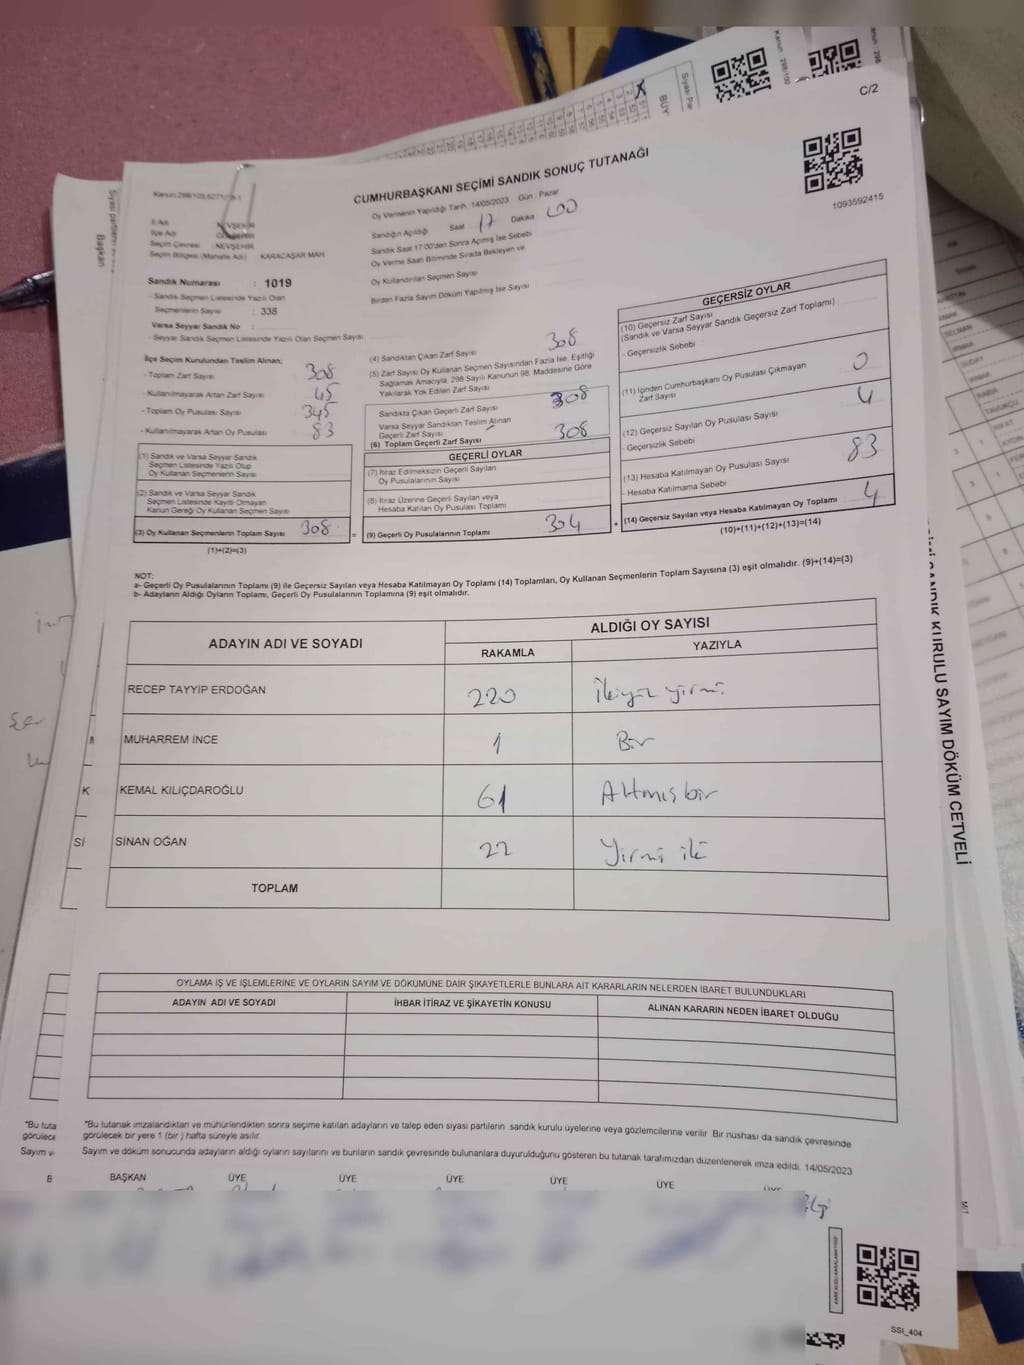 C/2
1093592415
CUMHURBAŞKANI SEÇİMİ SANDIK SONUÇ TUTANAĞI
Oy Vermenin Yapıldığı Tarih : 14/05/2023 Gün : Pazar
Sandığın Açıldığı Saat 17 Dakika 00
Sandık Saat 17:00'den Sonra Açılmış İse Sebebi
Oy Verme Saati Bitiminde Sırada Bekleyen ve
Oy Kullandırılan Seçmen Sayısı
Birden Fazla Sayım Döküm Yapılmış İse Sayısı
İl Adı : NEVŞEHİR
İlçe Adı
Seçim Çevresi : NEVŞEHİR
Seçim Bölgesi (Mahalle Adı) KARACAŞAR MAH
Sandık Numarası : 1019
- Sandık Seçmen Listesinde Yazılı Olan
Seçmenlerin Sayısı : 338
Varsa Seyyar Sandık No :
- Seyyar Sandık Seçmen Listesinde Yazılı Olan Seçmen Sayısı :
İlçe Seçim Kurulundan Teslim Alınan;
- Toplam Zarf Sayısı 308
- Kullanılmayarak Artan Zarf Sayısı 45
- Toplam Oy Pusulası Sayısı 345
- Kullanılmayarak Artan Oy Pusulası 83
(1) Sandık ve Varsa Seyyar Sandık
Seçmen Listesinde Yazılı Olup
Oy Kullanan Seçmenlerin Sayısı
(2) Sandık ve Varsa Seyyar Sandık
Seçmen Listesinde Kayıtlı Olmayan
Kanun Gereği Oy Kullanan Seçmen Sayısı
(3) Oy Kullanan Seçmenlerin Toplam Sayısı 308
(1)+(2)=(3)
(4) Sandıktan Çıkan Zarf Sayısı 308
(5) Zarf Sayısı Oy Kullanan Seçmen Sayısından Fazla İse, Eşitliği
Sağlamak Amacıyla, 298 Sayılı Kanunun 98. Maddesine Göre
Yakılarak Yok Edilen Zarf Sayısı
Sandıkta Çıkan Geçerli Zarf Sayısı 308
Varsa Seyyar Sandıktan Teslim Alınan
Geçerli Zarf Sayısı
(6) Toplam Geçerli Zarf Sayısı 308
GEÇERLİ OYLAR
(7) İtiraz Edilmeksizin Geçerli Sayılan
Oy Pusulalarının Sayısı
(8) İtiraz Üzerine Geçerli Sayılan veya
Hesaba Katılan Oy Pusulası Toplamı
(9) Geçerli Oy Pusulalarının Toplamı 304
GEÇERSİZ OYLAR
(10) Geçersiz Zarf Sayısı
(Sandık ve Varsa Seyyar Sandık Geçersiz Zarf Toplamı)
- Geçersizlik Sebebi
(11) İçinden Cumhurbaşkanı Oy Pusulası Çıkmayan
Zarf Sayısı 0
(12) Geçersiz Sayılan Oy Pusulası Sayısı 4
- Geçersizlik Sebebi
(13) Hesaba Katılmayan Oy Pusulası Sayısı 83
- Hesaba Katılmama Sebebi
(14) Geçersiz Sayılan veya Hesaba Katılmayan Oy Toplamı 4
(10)+(11)+(12)+(13)=(14)
NOT:
a- Geçerli Oy Pusulalarının Toplamı (9) ile Geçersiz Sayılan veya Hesaba Katılmayan Oy Toplamı (14) Toplamları, Oy Kullanan Seçmenlerin Toplam Sayısına (3) eşit olmalıdır. (9)+(14)=(3)
b- Adayların Aldığı Oyların Toplamı, Geçerli Oy Pusulalarının Toplamına (9) eşit olmalıdır.
ADAYIN ADI VE SOYADI
ALDIĞI OY SAYISI
RAKAMLA YAZIYLA
RECEP TAYYİP ERDOĞAN 220 İkiyüz yirmi
MUHARREM İNCE 1 Bir
KEMAL KILIÇDAROĞLU 61 Altmış bir
SİNAN OĞAN 22 Yirmi iki
TOPLAM
OYLAMA İŞ VE İŞLEMLERİNE VE OYLARIN SAYIM VE DÖKÜMÜNE DAİR ŞİKAYETLERLE BUNLARA AİT KARARLARIN NELERDEN İBARET BULUNDUKLARI
ADAYIN ADI VE SOYADI İHBAR İTİRAZ VE ŞİKAYETİN KONUSU ALINAN KARARIN NEDEN İBARET OLDUĞU
"Bu tutanak imzalandıktan ve mühürlendikten sonra seçime katılan adayların ve talep eden siyasi partilerin sandık kurulu üyelerine veya gözlemcilerine verilir. Bir nüshası da sandık çevresinde
görülecek bir yere 1 (bir) hafta süreyle asılır.
Sayım ve döküm sonucunda adayların aldığı oyların sayılarını ve bunların sandık çevresinde bulunanlara duyurulduğunu gösteren bu tutanak tarafımızdan düzenlenerek imza edildi. 14/05/2023
BAŞKAN ÜYE ÜYE ÜYE ÜYE ÜYE
SSİ_404
Başkan
BÜY
Siyasi Par
KURULU SAYIM DÖKÜM CETVELİ